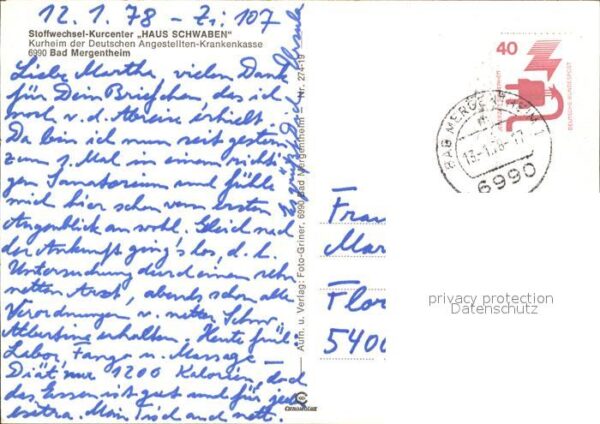 12.1.78 - Zi: 107
Stoffwechsel-Kurcenter „HAUS SCHWABEN"
Kurheim der Deutschen Angestellten-Krankenkasse
6990 Bad Mergentheim
Liebe Martha, vielen Dank
für Dein Briefchen, das ich
noch v. d. Abreise erhielt.
Da bin ich nun seit gestern
zum 1. Mal in einem richti-
gen Sanatorium und fühle
mich hier schon vom ersten
Augenblick an wohl. Gleich nach
der Ankunft ging's los, d. h.
Untersuchung durch einen sehr
netten Arzt, abends schon alle
Verordnungen v. netter Schw.
Albertine erhalten. Heute früh:
Labor, Fango u. Massage.
Diät nur 1200 Kalorien, doch
das Essen ist gut und für jeden
extra. Mein Tisch auch nett.
Es grüßt Dich Ursula
Aufn. u. Verlag: Foto-Griner, 6990 Bad Mergentheim – Nr. 274-19
CEKACOLOR
40
DEUTSCHE BUNDESPOST
BAD MERGENTHEIM 1
13-1.78-17
6990
Frau
Mar
Flor
5400
privacy protection
Datenschutz